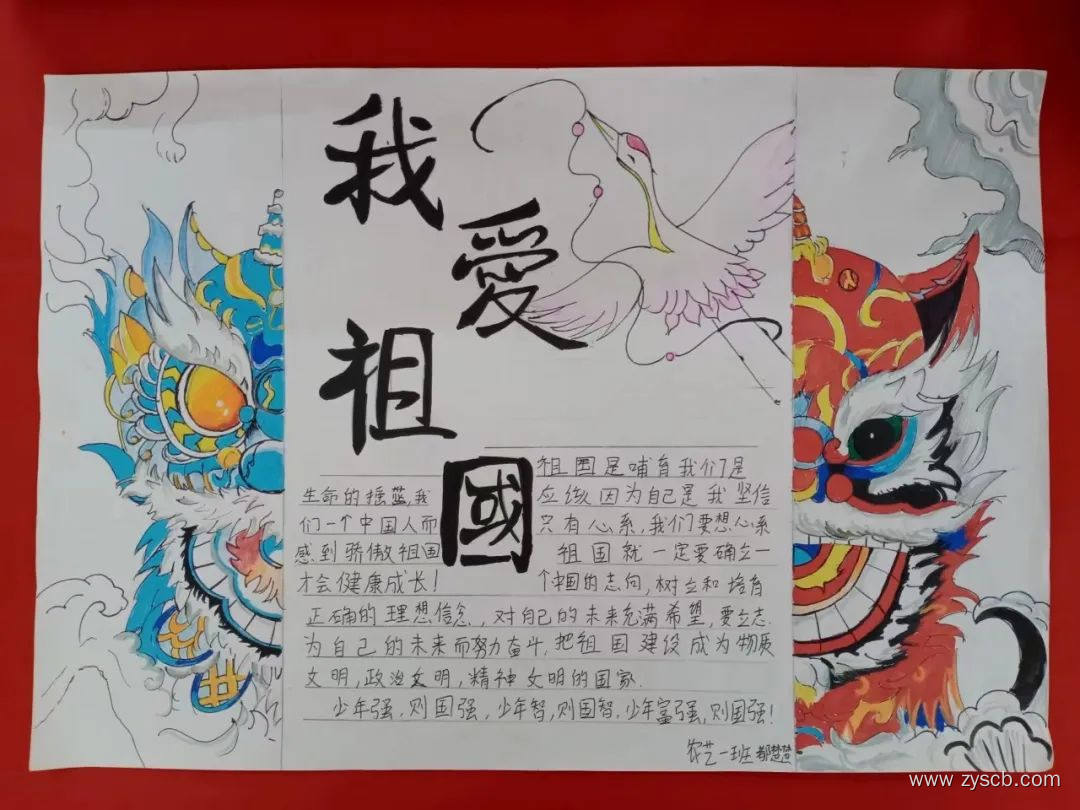 我
愛
祖
國
祖国是哺育我们是
生命的摇蓝,我 应该因为自己是我坚信
们一个中国人而 只有心系,我们要想心系
感到骄傲祖国 祖国就一定要确立一
才会健康成长! 个中国的志向,树立和培育
正确的理想信念,对自己的未来充满希望,要立志
为自己的未来而努力奋斗,把祖国建设成为物质
文明,政治文明,精神文明的国家.
少年强,则国强,少年智,则国智,少年富强,则国强!
农艺一班
www.zyscb.com